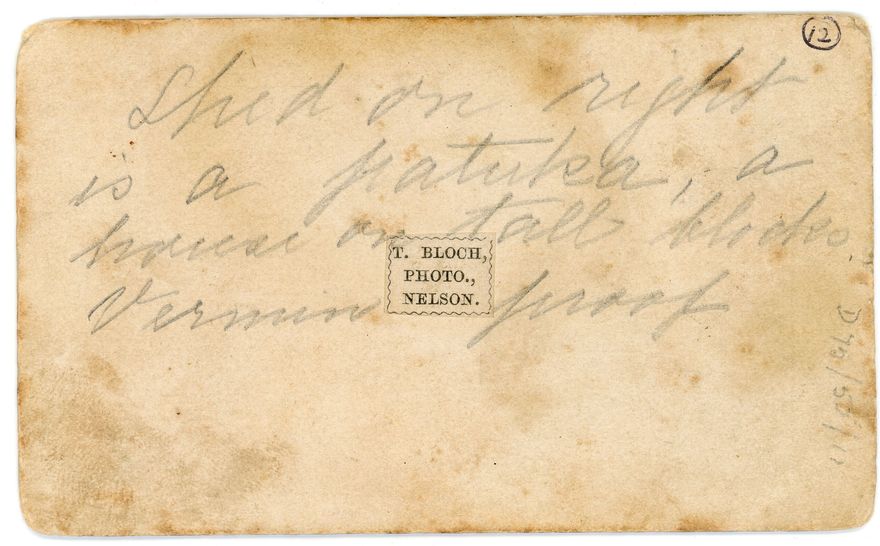 12
Shed on right
is a patuka, a
house on tall blocks
Vermin proof
T. BLOCH,
PHOTO.,
NELSON.